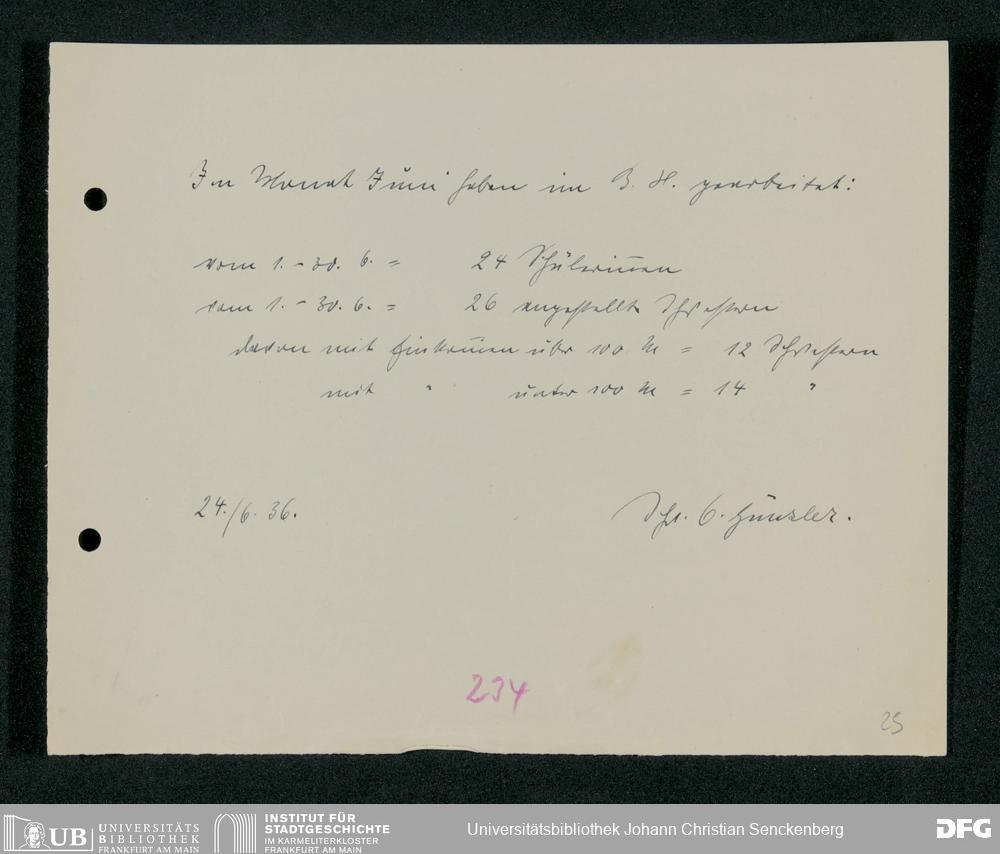 Im Monat Juni haben im B. H. gearbeitet:
vom 1. - 30. 6. = 24 Schülerinnen
vom 1. - 30. 6. = 26 angestellte Schwestern
davon mit Einkommen über 100 M = 12 Schwestern
mit " unter 100 M = 14 "
24./6. 36. Schw. O. Künzler.
234
25
UB UNIVERSITÄTS
BIBLIOTHEK
FRANKFURT AM MAIN
INSTITUT FÜR
STADTGESCHICHTE
IM KARMELITERKLOSTER
FRANKFURT AM MAIN
Universitätsbibliothek Johann Christian Senckenberg
DFG